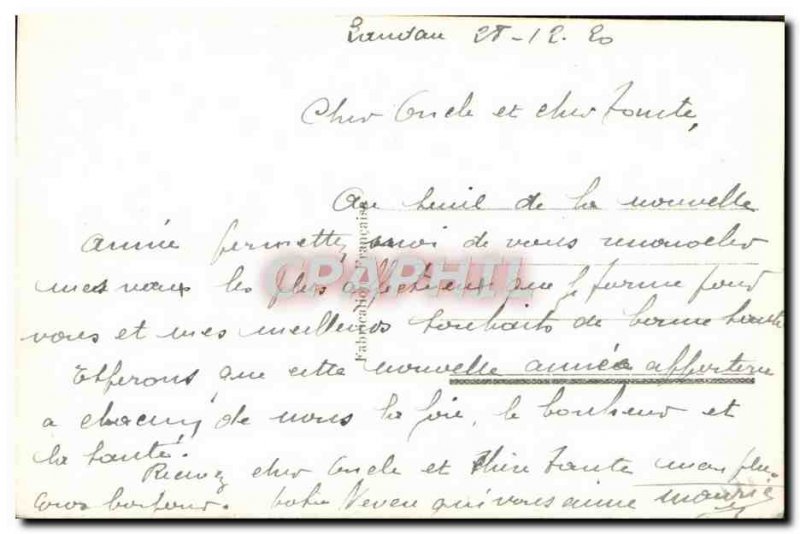 Landau 28-12-20
Cher Oncle et cher Tante,
Au seuil de la nouvelle
année permettez moi de vous
mes vœux les plus affectueux que je forme pour
vous et mes meilleurs souhaits de bonne santé
Espérons que cette nouvelle année apportera
a chacun de nous la joie, le bonheur et
la santé.
Recevez cher Oncle et chère Tante mes plus
gros baisers. votre Neveu qui vous aime Maurice
Fabrication Française
CPAPHIL